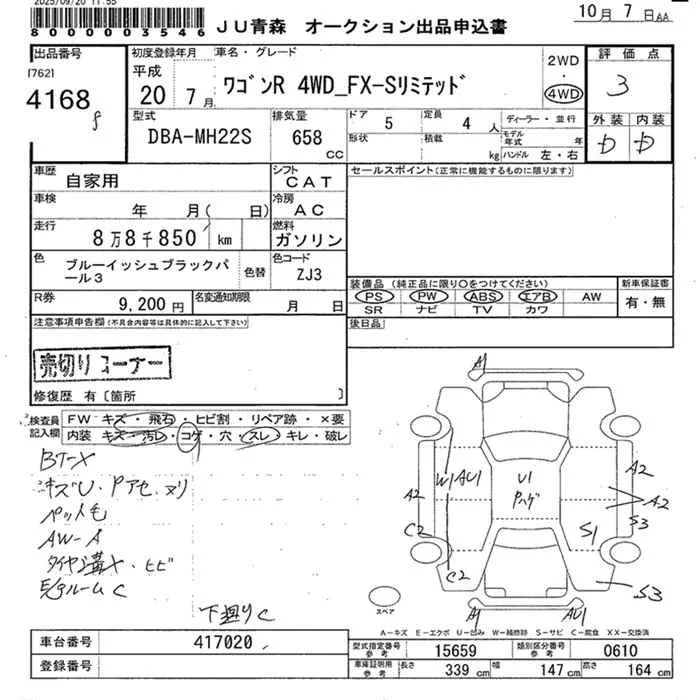 2025/09/20 11:55
8000003546
JU青森 オークション出品申込書
10月 7日AA
出品番号
[762]
4168
初度登録年月
平成
20 7月
車名・グレード
ワゴンR 4WD_FX-Sリミテッド
2WD
・
4WD
評価点
3
外装 内装
D D
型式
DBA-MH22S
排気量
658
CC
ドア
5
定員
4 人
形状
積載
kg
ディーラー・並行
モデル年式 年
ハンドル 左・右
車歴
自家用
シフト
CAT
セールスポイント(正常に機能するものに限ります)
車検
年 月( 日)
冷房
AC
走行
8万8千850 km
燃料
ガソリン
色
ブルーイッシュブラックパール3
色替
色コード
ZJ3
装備品(純正品に限り○をつけてください)
PS PW ABS エアB AW
SR ナビ TV カワ
新車保証書
有・無
R券
9,200 円
名変通知期限
月 日
後日品
注意事項申告欄(不具合内容等は具体的に記入して下さい)
売切りコーナー
修復歴 有〔箇所 〕
検査員記入欄
FW キズ・飛石・ヒビ割・リペア跡・×要
内装 キズ・汚レ・コゲ・穴・スレ・キレ・破レ
BT-X
キズU・Pアセ、ヌリ
ペット毛
AW-A
タイヤ溝X・ヒビ
E/gルームC
下廻りC
A1
W1
AU1
U1
Pハゲ
A2
A2
A2
S3
C2
S1
C2
S3
A1
AU1
スペア
A-キズ E-エクボ U-凹み W-補修跡 S-サビ C-腐食 XX-交換済
車台番号
417020
登録番号
型式指定番号
参考
15659
類別区分番号
参考
0610
車庫証明用
参考
長さ
339 cm
幅
147 cm
高さ
164 cm